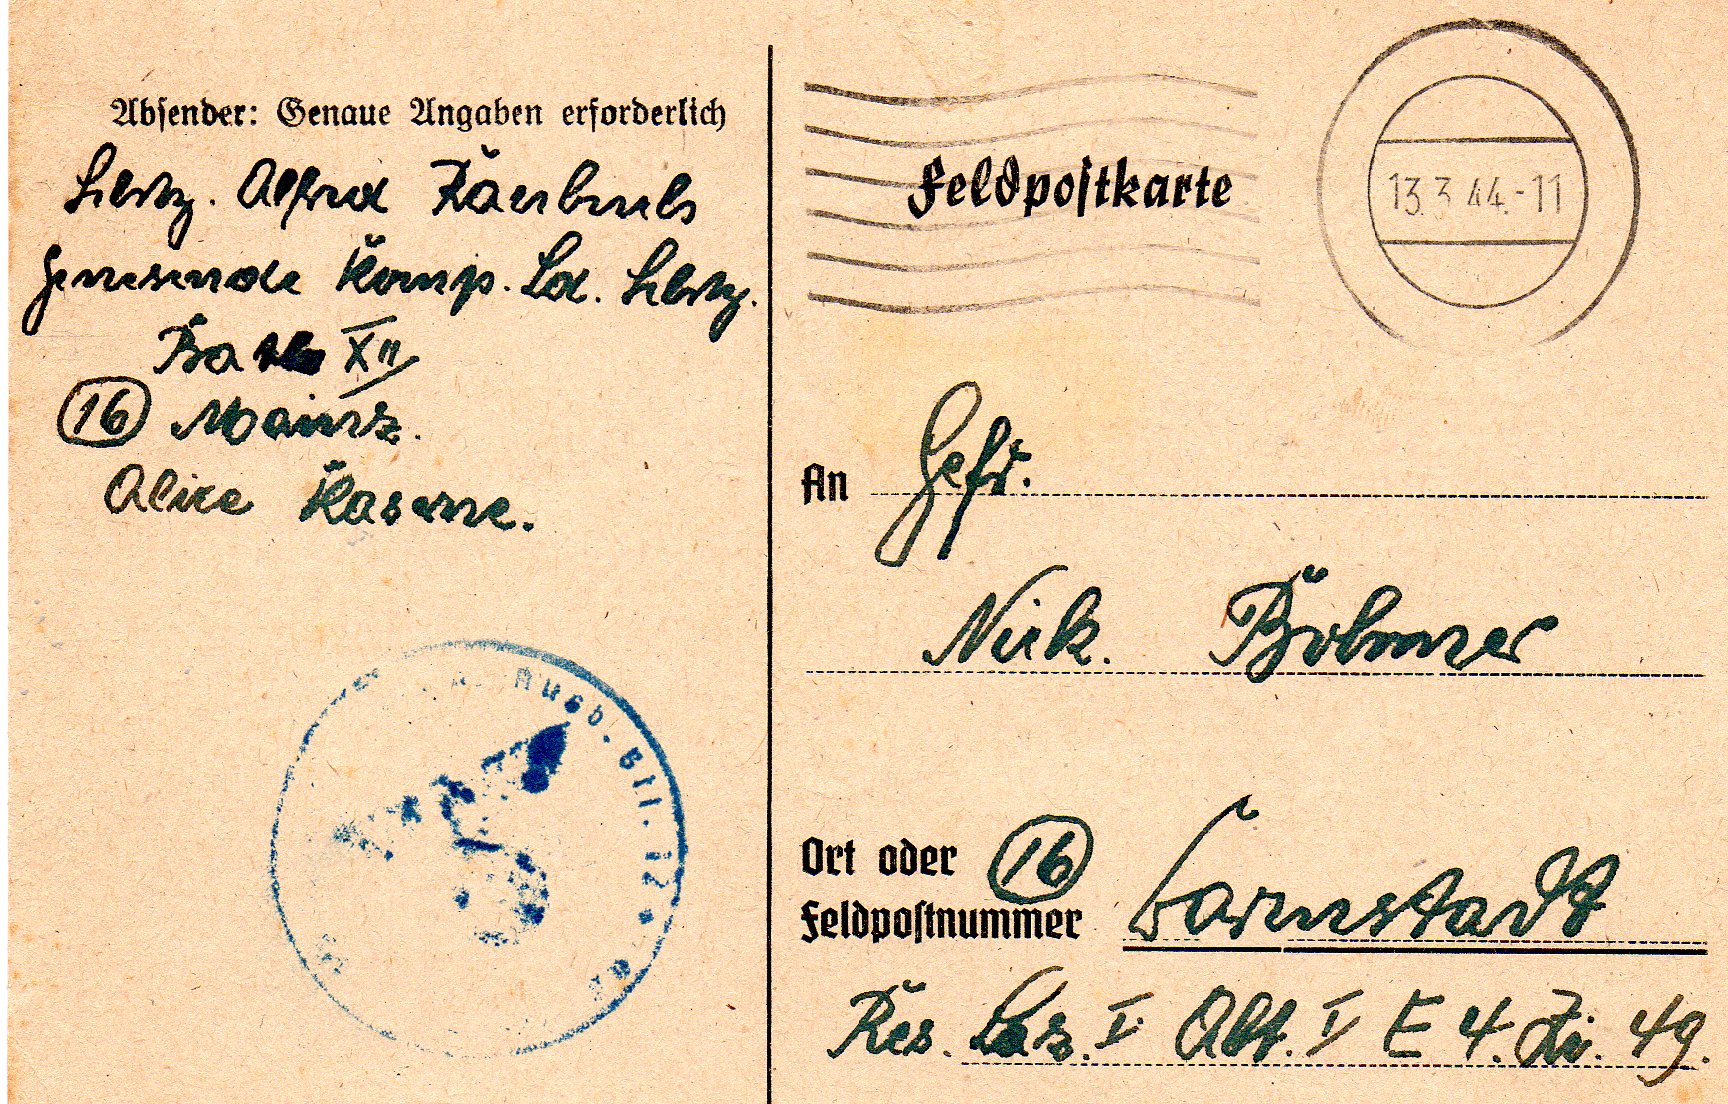 Absender: Genaue Angaben erforderlich
Alfred
Genesende Komp. Ld.
XII
16 Mainz.
Alice Kaserne.
Ausb. Btl. 12
Feldpostkarte
13.3.44.-11
An Gefr.
Nick. Böhmer
Ort oder
Feldpostnummer
16 Darmstadt
Res. Laz. I Abt. I E 4. Zi. 49.